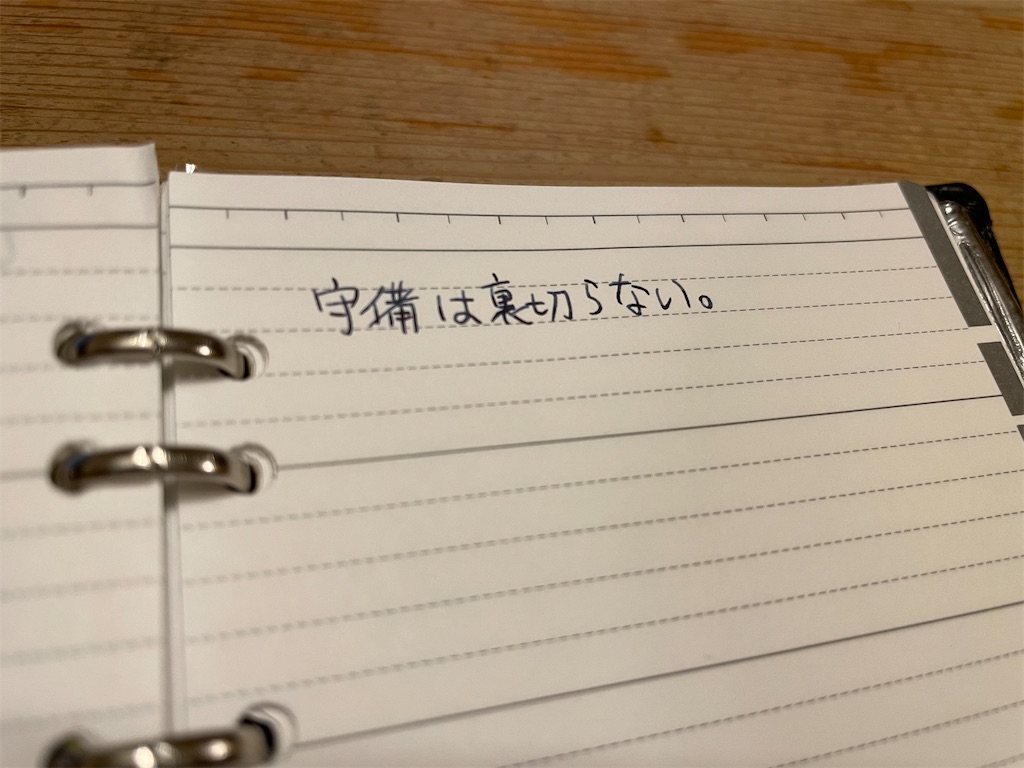 守備は裏切らない。